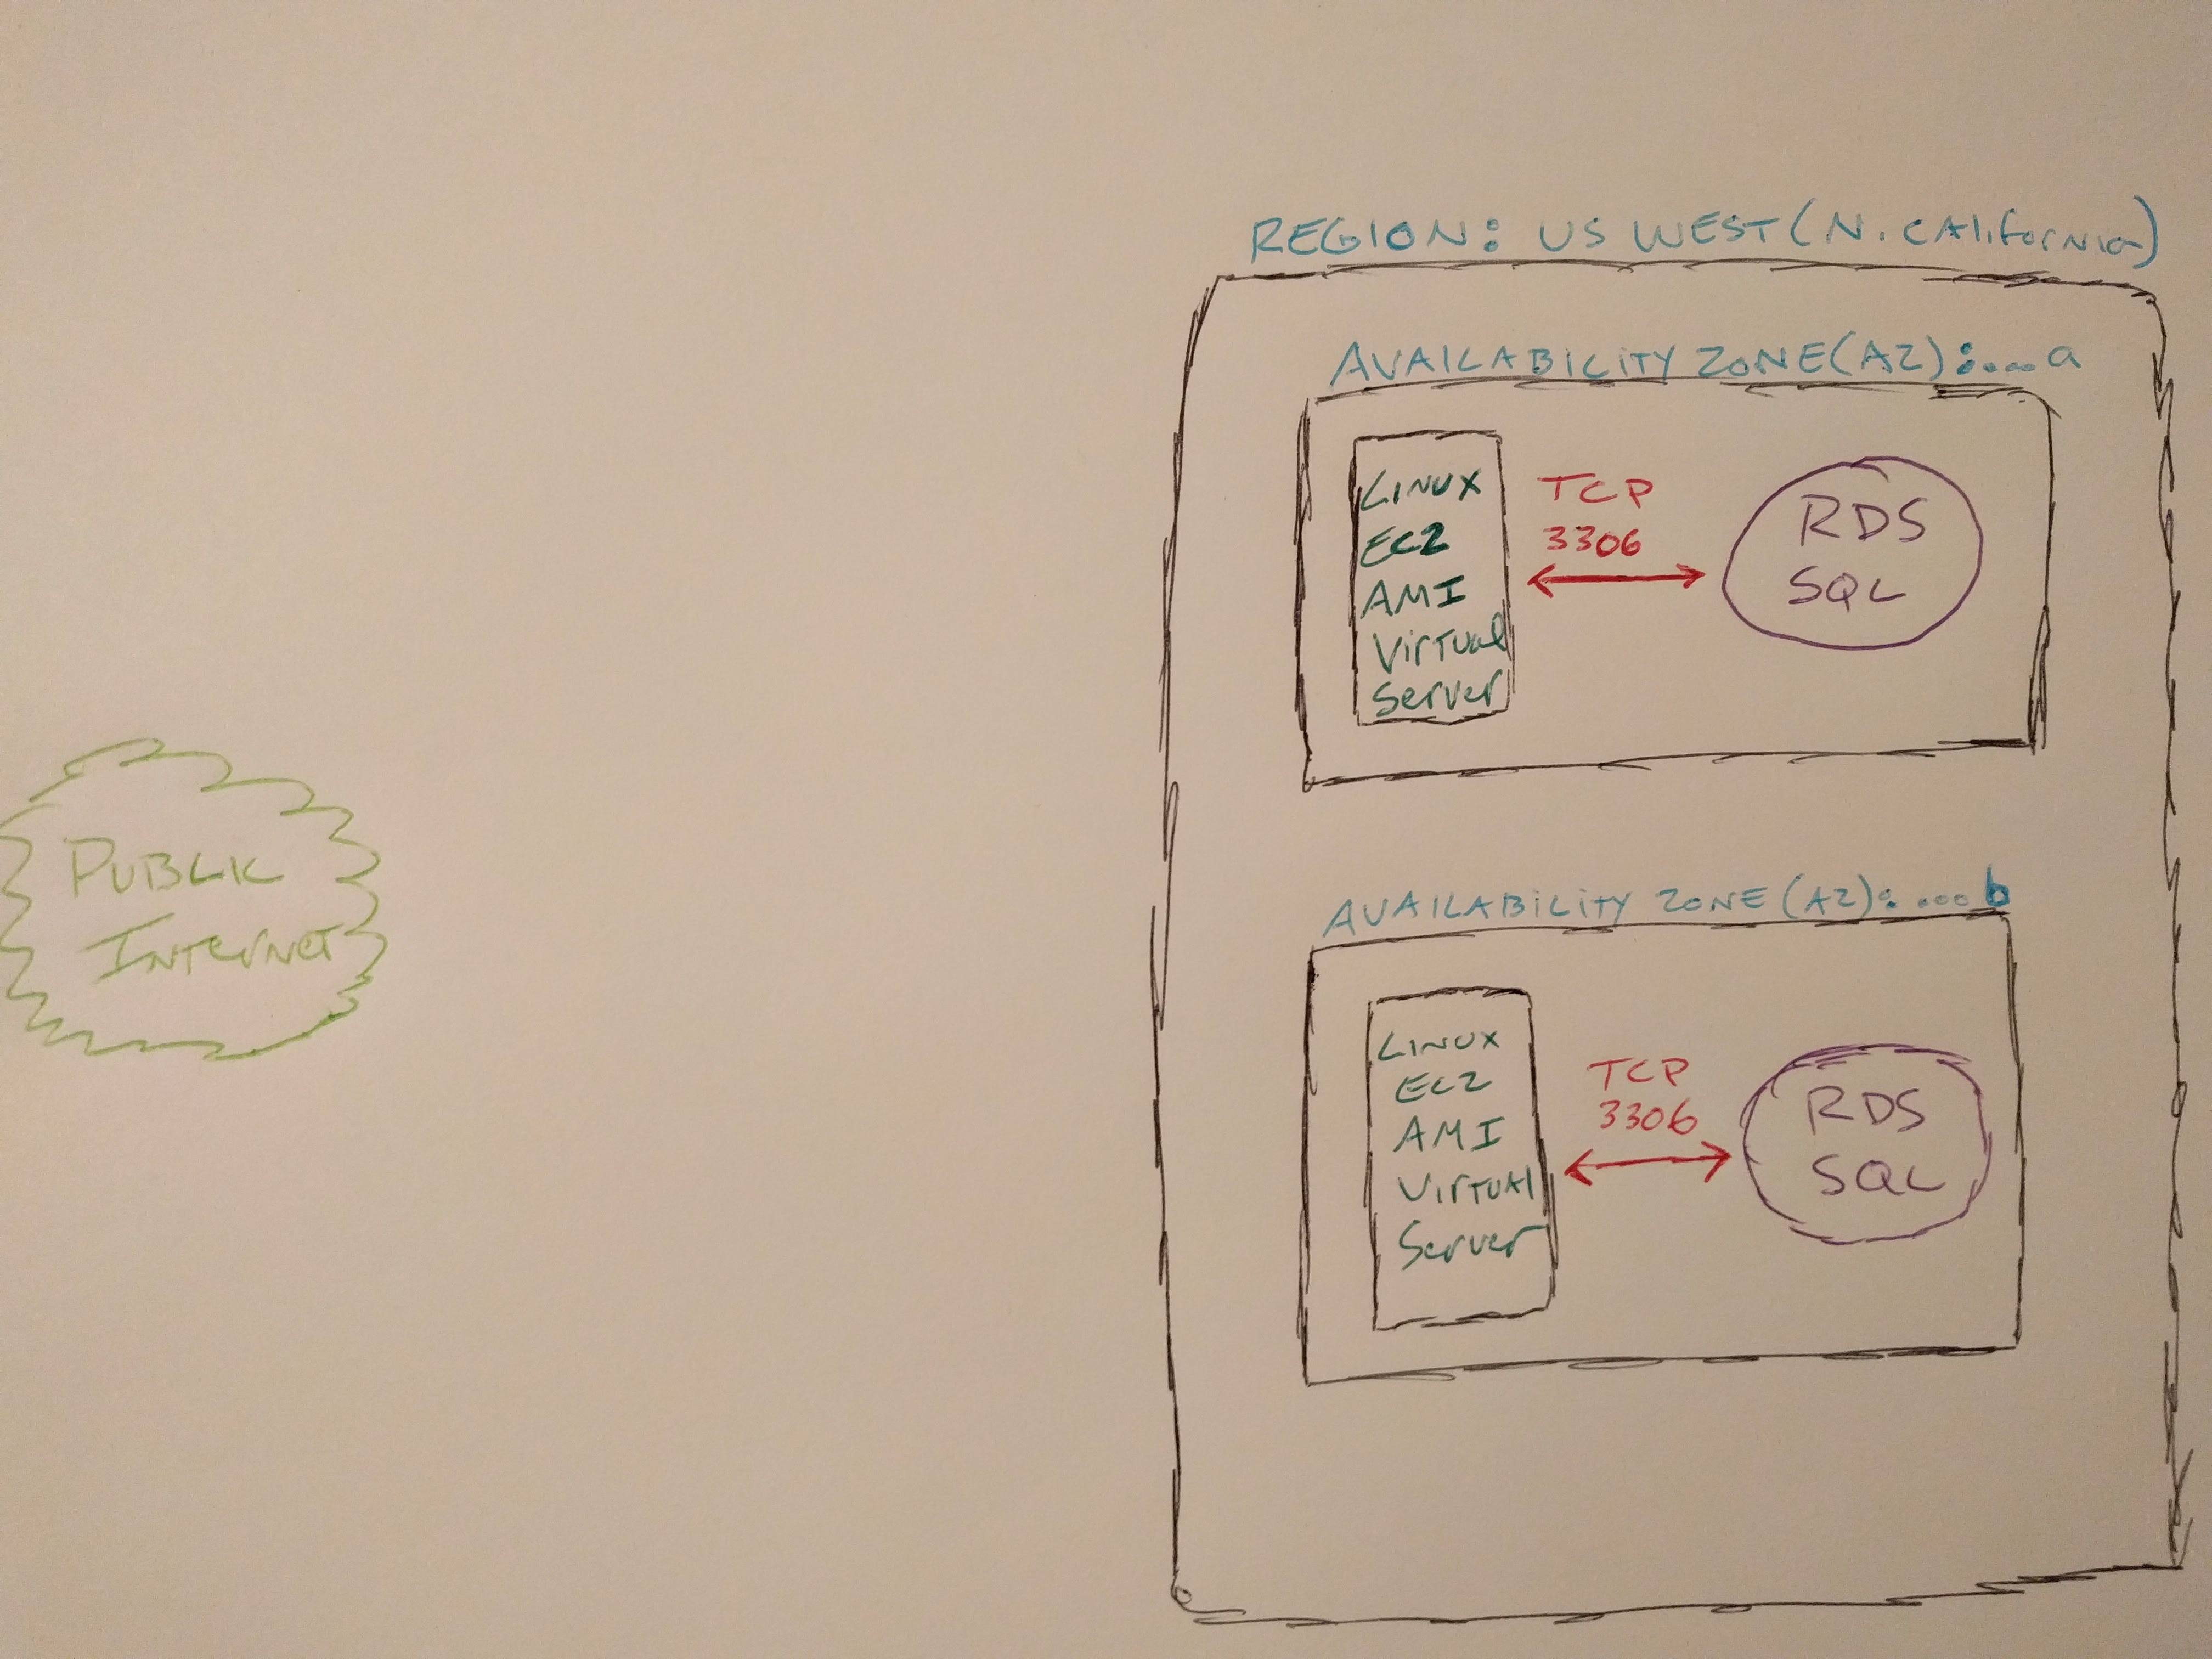 REGION: US WEST (N. CALifornia)
AVAILABILITY ZONE (AZ):....a
LINUX
EC2
AMI
Virtual
Server
TCP
3306
RDS
SQL
PUBLIC
INTerNeT
AVAILABILITY ZONE (AZ): ....b
LINUX
EC2
AMI
VirTUAl
Server
TCP
3306
RDS
SQL